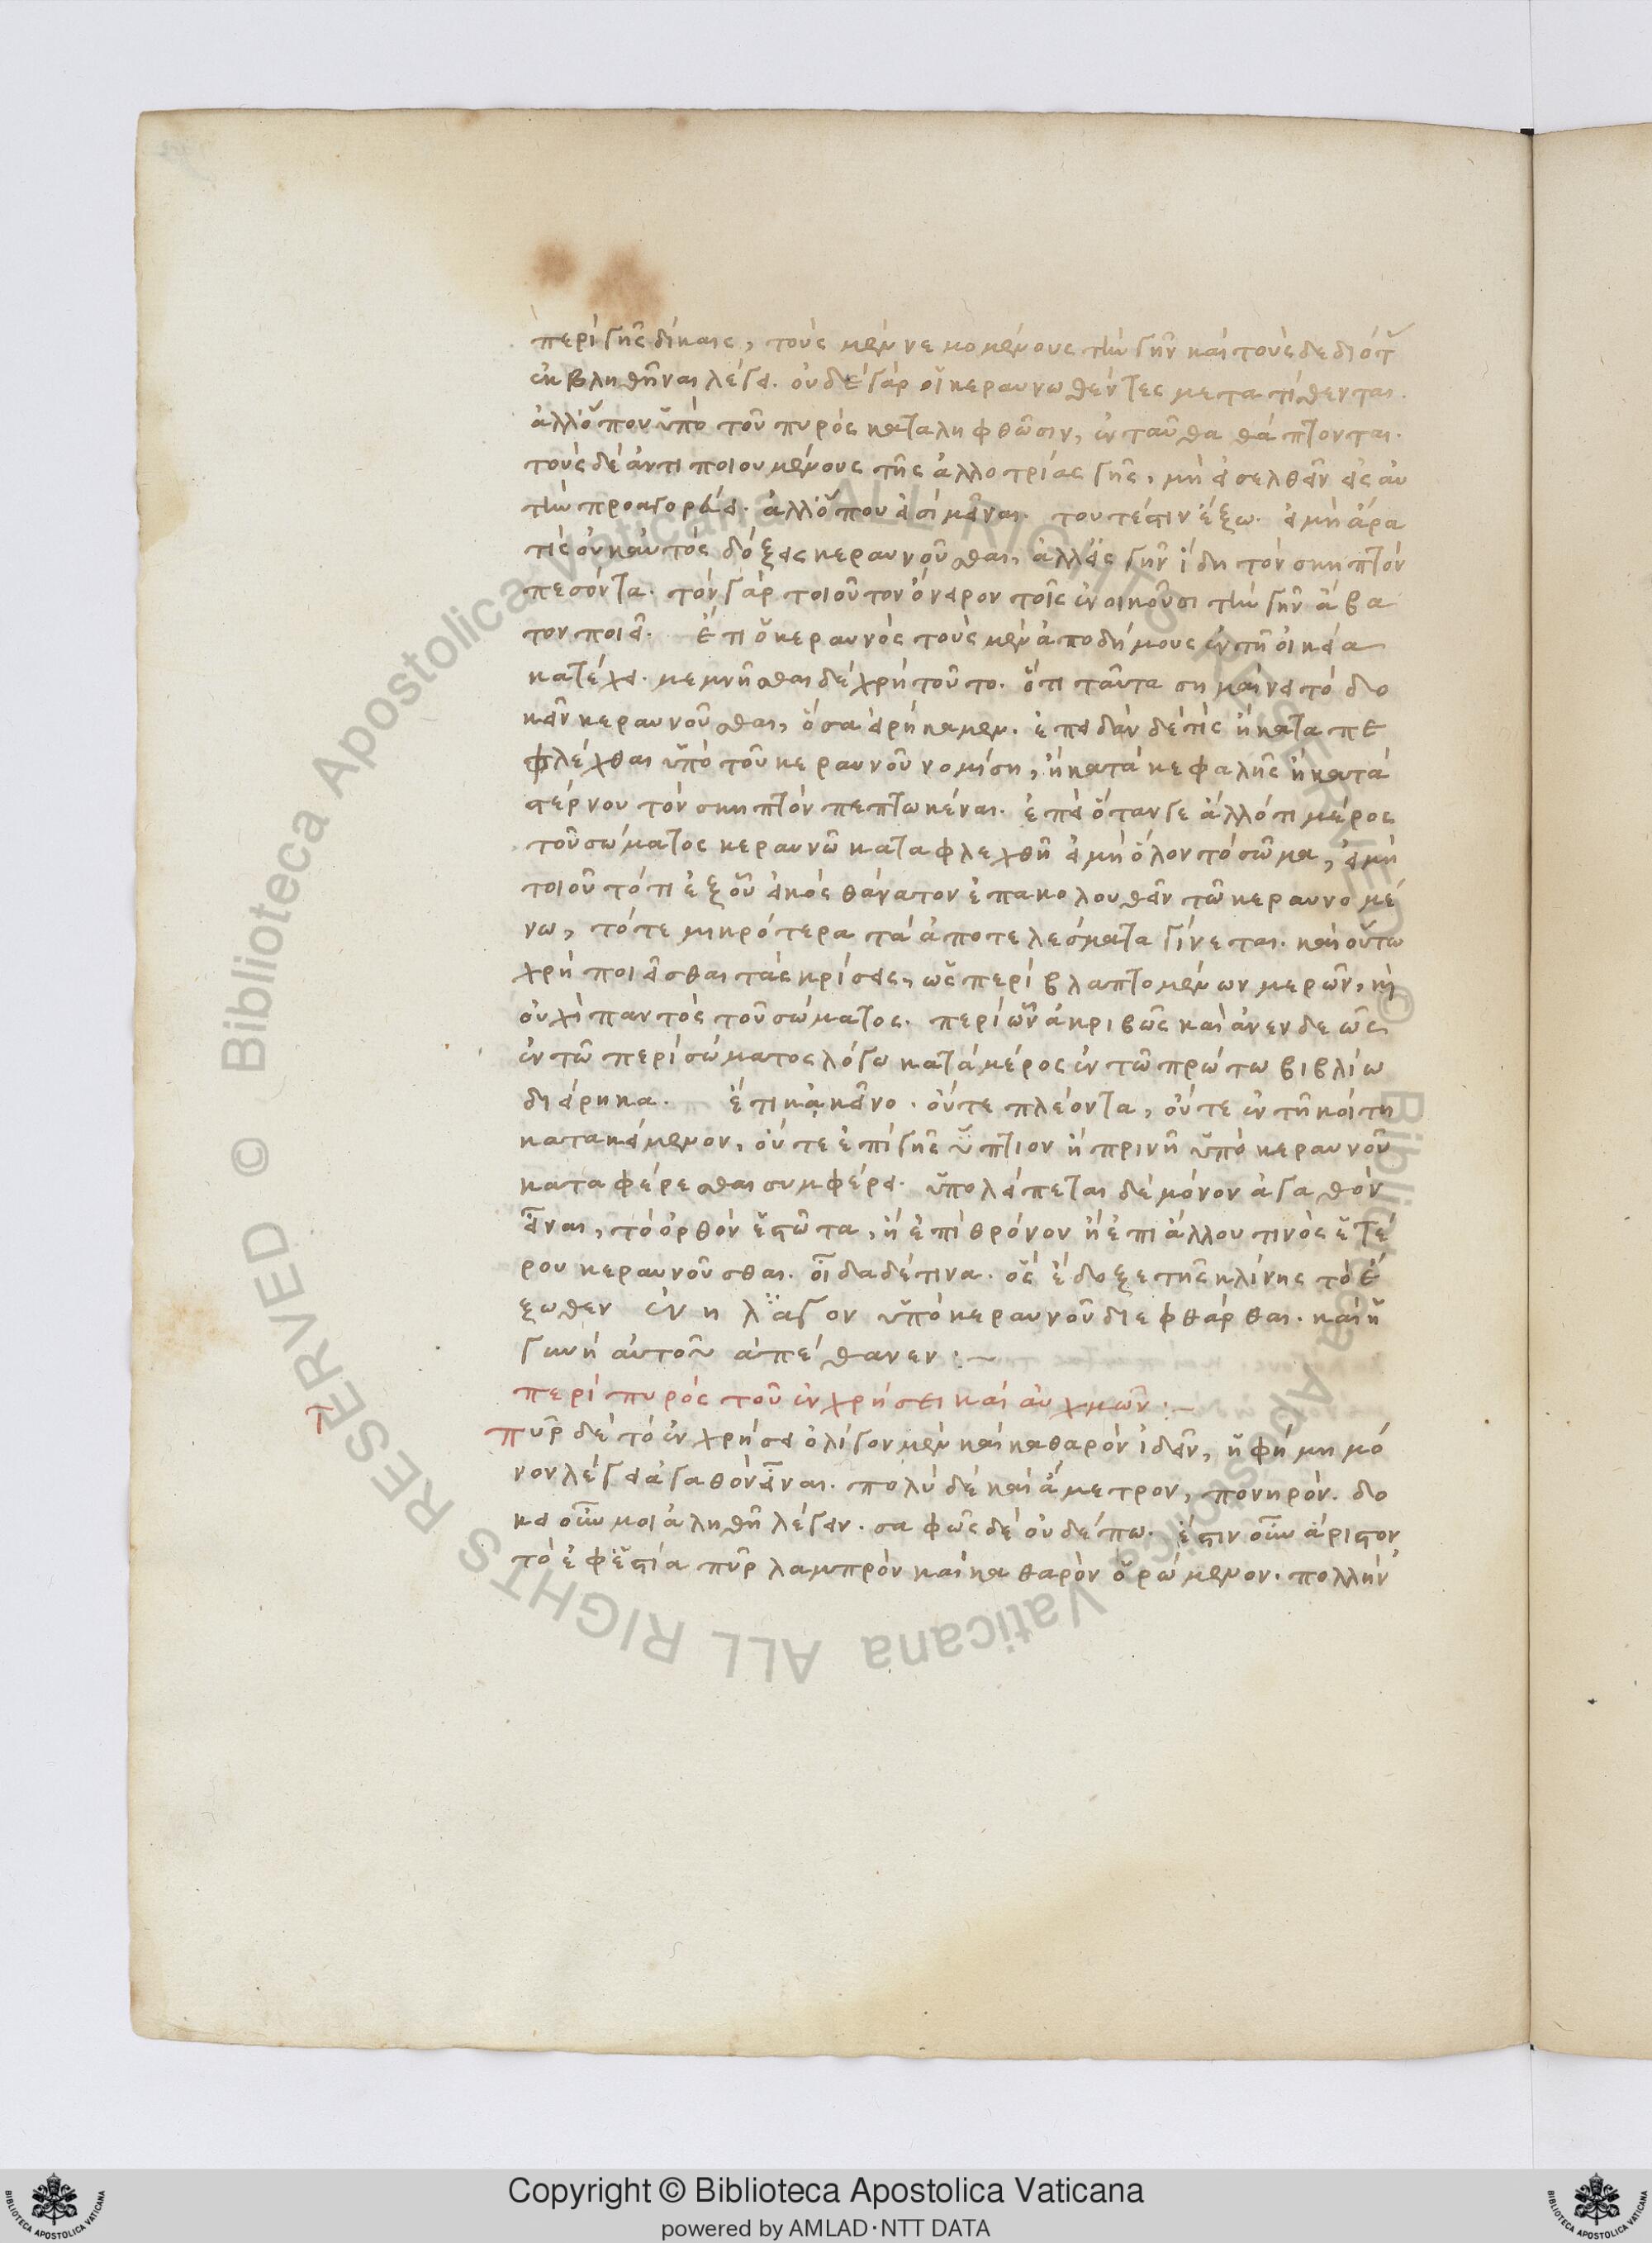 περὶ γῆς δίκαις, τοὺς μὲν νεμομένους τὴν γῆν καὶ τοὺς δεδιότ
ἐκβληθῆναι λέγει. οὐδὲ γὰρ οἱ κεραυνωθέντες μετατίθενται.
ἀλλ' ὅπου ὑπὸ τοῦ πυρὸς καταληφθῶσιν, ἐνταῦθα θάπτονται.
τοὺς δὲ ἀντιποιουμένους τῆς ἀλλοτρίας γῆς, μὴ εἰσελθεῖν εἰς αὐ
τὴν προαγορεύει. ἀλλ' ὅπου εἰσὶ μεῖναι. τουτέστιν ἔξω. εἰ μὴ ἄρα
τις οὐκ αὐτὸς δόξει κεραυνοῦσθαι, ἀλλ' εἰς γῆν ἴδη τὸν σκηπτὸν
πεσόντα. τὸν γὰρ τοιοῦτον ὄνειρον τοῖς ἐνοικοῦσι τὴν γῆν ἄβα
τον ποιεῖ. ἔτι ὁ κεραυνὸς τοὺς μὲν ἀποδήμους ἐν τῇ οἰκεία
κατέχει. μεμνῆσθαι δὲ χρὴ τοῦτο. ὅτι ταῦτα σημαίνει τὸ δο
κεῖν κεραυνοῦσθαι, ὅσα εἰρήκαμεν. ἐπειδάν δέ τις ἢ καταπε
φλέχθαι ὑπὸ τοῦ κεραυνοῦ νομίση, ἢ κατὰ κεφαλῆς ἢ κατὰ
στέρνου τὸν σκηπτὸν πεπτωκέναι. ἐπεὶ ὅταν γε ἄλλό τι μέρος
τοῦ σώματος κεραυνῶ καταφλεχθῆ εἰ μὴ ὅλον τὸ σῶμα, εἰ μὴ
τοιοῦτό τι ἐξ οὗ εἰκὸς θάνατον ἐπακολουθεῖν τῶ κεραυνομέ
νω, τότε μικρότερα τὰ ἀποτελέσματα γίνεται. καὶ οὕτω
χρὴ ποιεῖσθαι τὰς κρίσεις, ὡς περὶ βλαπτομένων μερῶν, κὶ
οὐχὶ παντὸς τοῦ σώματος. περὶ ὧν ἀκριβῶς καὶ ἀνενδεῶς
ἐν τῶ περὶ σώματος λόγω κατὰ μέρος ἐν τῶ πρώτω βιβλίω
διείρηκα. ἔτι κἀκεῖνο. οὔτε πλέοντα, οὔτε ἐν τῆ κοίτη
κατακείμενον, οὔτε ἐπὶ γῆς ὕπτιον ἢ πρινῆ ὑπὸ κεραυνοῦ
καταφέρεσθαι συμφέρει. ὑπολείπεται δὲ μόνον ἀγαθὸν
εἶναι, τὸ ὀρθὸν ἑστῶτα, ἢ ἐπὶ θρόνον ἢ ἐπι ἄλλου τινὸς ἑτέ
ρου κεραυνοῦσθαι. οἶδα δέ τινα. ὃς ἔδοξε τῆς κλίνης τὸ ἔ
ξωθεν ἐν η λαγον ὑπὸ κεραυνοῦ διεφθάρθαι. καὶ ἡ
γυνὴ αὐτοῦ ἀπέθανεν:~
περὶ πυρὸς τοῦ ἐν χρήσει καὶ αὐχμῶν:~
πῦρ δὲ τὸ ἐν χρήσει ὀλίγον μὲν καὶ καθαρὸν ἰδεῖν, ἡ φήμη μό
νον λέγει ἀγαθὸν εἶναι. πολὺ δὲ καὶ ἄμετρον, πονηρόν. δο
κεῖ οὖν μοι ἀληθῆ λέγειν. σαφῶς δὲ οὐδέπω. ἔστιν οὖν ἄριστον
τὸ ἐφ' ἑστία πῦρ λαμπρὸν καὶ καθαρὸν ὁρώμενον. πολλὴν
© Biblioteca Apostolica Vaticana ALL RIGHTS RESERVED © Biblioteca Apostolica Vaticana ALL RIGHTS RESERVED
Copyright © Biblioteca Apostolica Vaticana
powered by AMLAD·NTT DATA
BIBLIOTECA APOSTOLICA VATICANA
BIBLIOTECA APOSTOLICA VATICANA